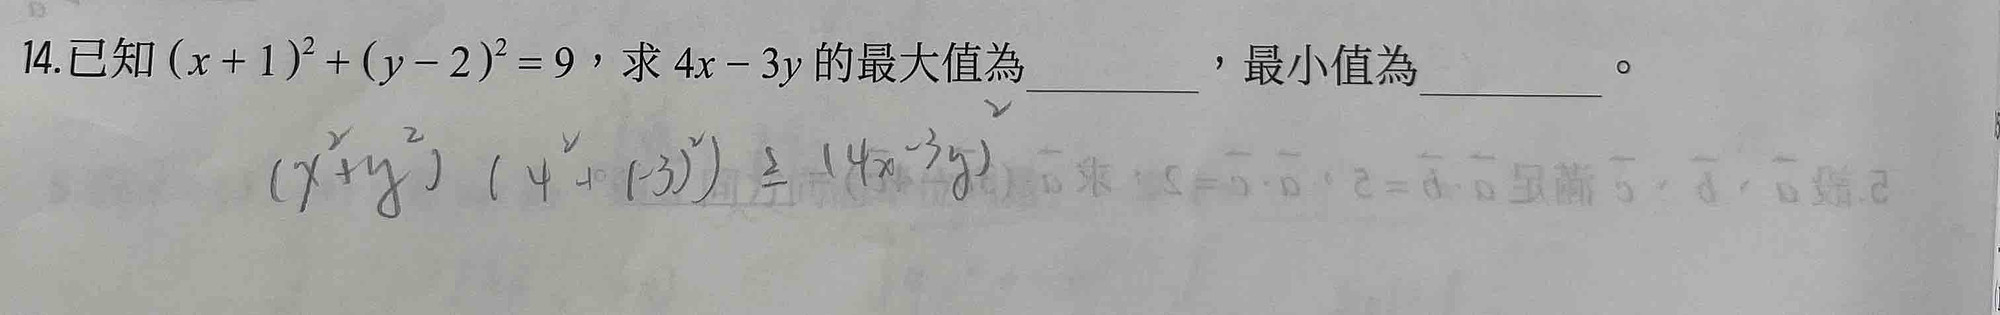 14.已知 (x + 1)² + (y − 2)² = 9，求 4x − 3y 的最大值為________，最小值為________。
(x²+y²) (4²+(-3)²) ≥ (4x-3y)²